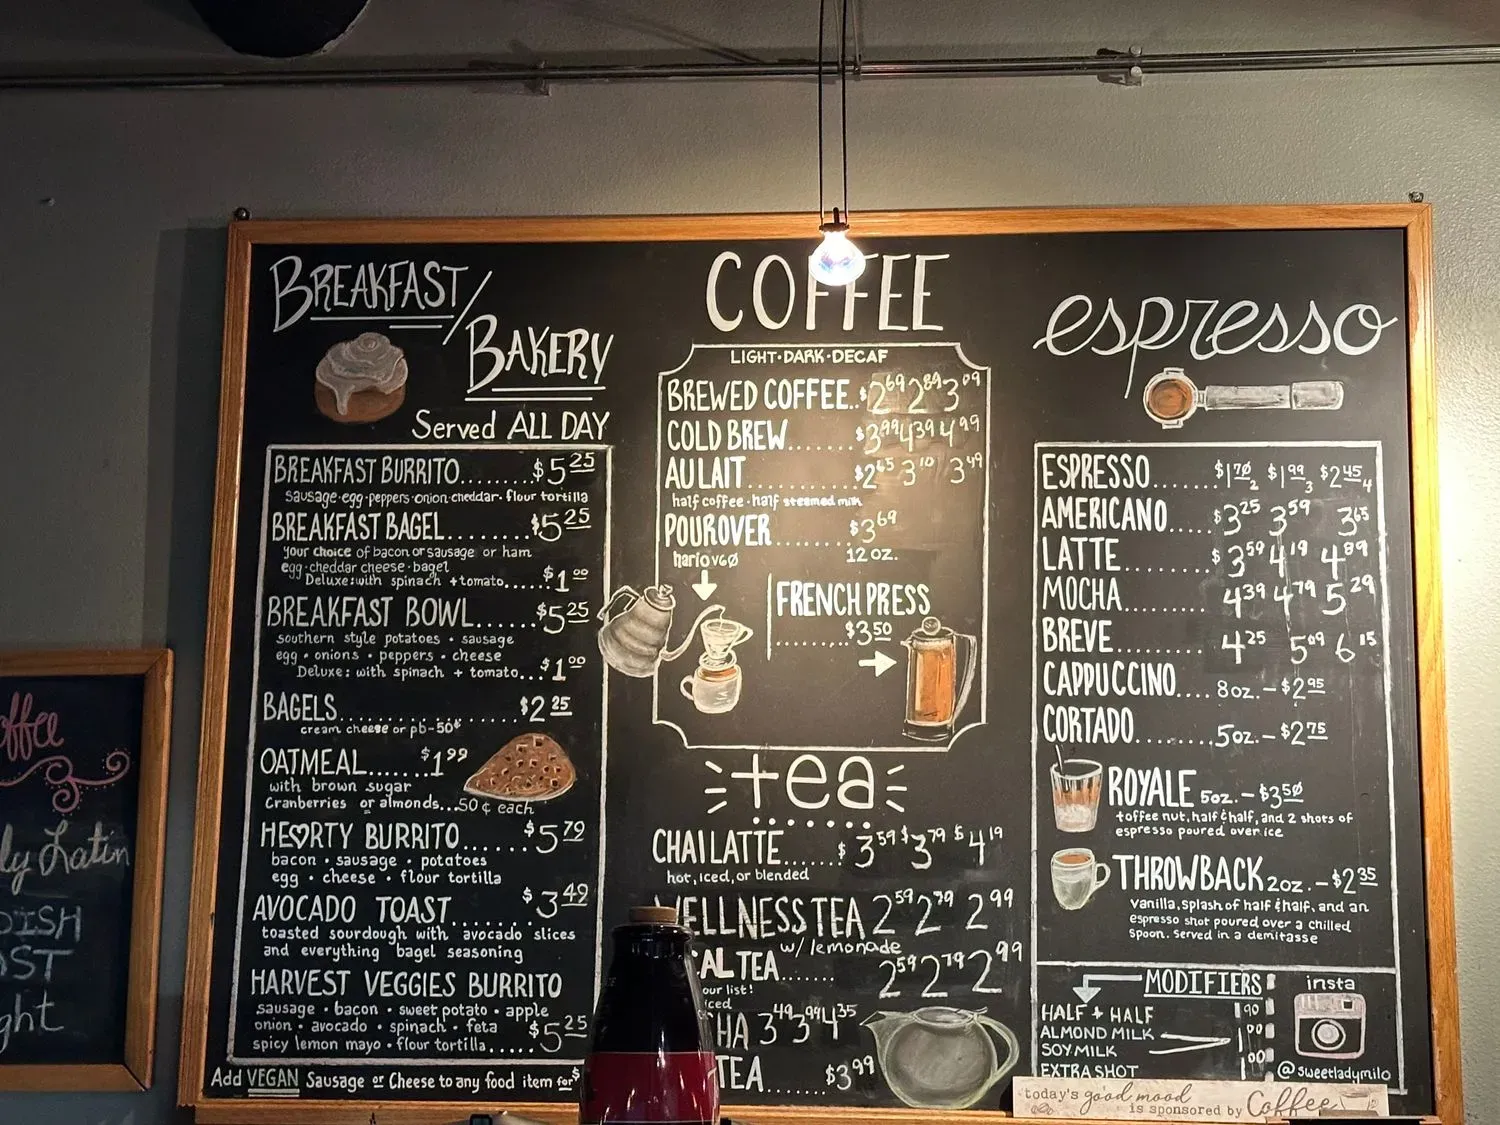 BREAKFAST/
BAKERY
Served ALL DAY
BREAKFAST BURRITO........$5 25
sausage·egg·peppers·onion·cheddar·flour tortilla
BREAKFAST BAGEL..........$5 25
your choice of bacon or sausage or ham
egg·cheddar cheese·bagel
Deluxe: with spinach + tomato.....$1 00
BREAKFAST BOWL......$5 25
southern style potatoes • sausage
egg • onions • peppers • cheese
Deluxe: with spinach + tomato...$1 00
BAGELS....................$2 25
cream cheese or pb-50¢
OATMEAL......$1 99
with brown sugar
Cranberries or almonds...50¢ each
HE♡RTY BURRITO......$5 79
bacon • sausage • potatoes
egg • cheese • flour tortilla
AVOCADO TOAST........$3 49
toasted sourdough with avocado slices
and everything bagel seasoning
HARVEST VEGGIES BURRITO
sausage • bacon • sweet potato • apple
onion • avocado • spinach • feta
spicy lemon mayo • flour tortilla.....$5 25
Add VEGAN Sausage or Cheese to any food item for $
COFFEE
LIGHT·DARK·DECAF
BREWED COFFEE..$2 69 2 89 3 09
COLD BREW.......$3 99 4 39 4 99
AU LAIT..........$2 65 3 10 3 49
half coffee·half steamed milk
POUROVER........$3 69
hario v60 12 oz.
FRENCH PRESS
.........$3 50
tea
CHAI LATTE......$3 59 $3 79 $4 19
hot, iced, or blended
WELLNESS TEA 2 59 2 79 2 99
w/ lemonade
AL TEA...... 2 59 2 79 2 99
our list!
iced
HA 3 49 3 99 4 35
TEA $3 99
espresso
ESPRESSO......$1 70 2 $1 99 3 $2 45 4
AMERICANO....$3 25 3 59 3 65
LATTE.........$3 59 4 19 4 89
MOCHA......... 4 39 4 79 5 29
BREVE......... 4 25 5 09 6 15
CAPPUCCINO.... 8oz.-$2 95
CORTADO........5oz.-$2 75
ROYALE 5oz.-$3 50
toffee nut, half & half, and 2 shots of
espresso poured over ice
THROWBACK 2oz.-$2 35
vanilla, splash of half & half, and an
espresso shot poured over a chilled
spoon. served in a demitasse
MODIFIERS
HALF + HALF 90
ALMOND MILK 1 00
SOY MILK
EXTRA SHOT 1 00
insta
@sweetladymilo
today's good mood
is sponsored by Coffee
offee
ly Latin
DISH
AST
ght